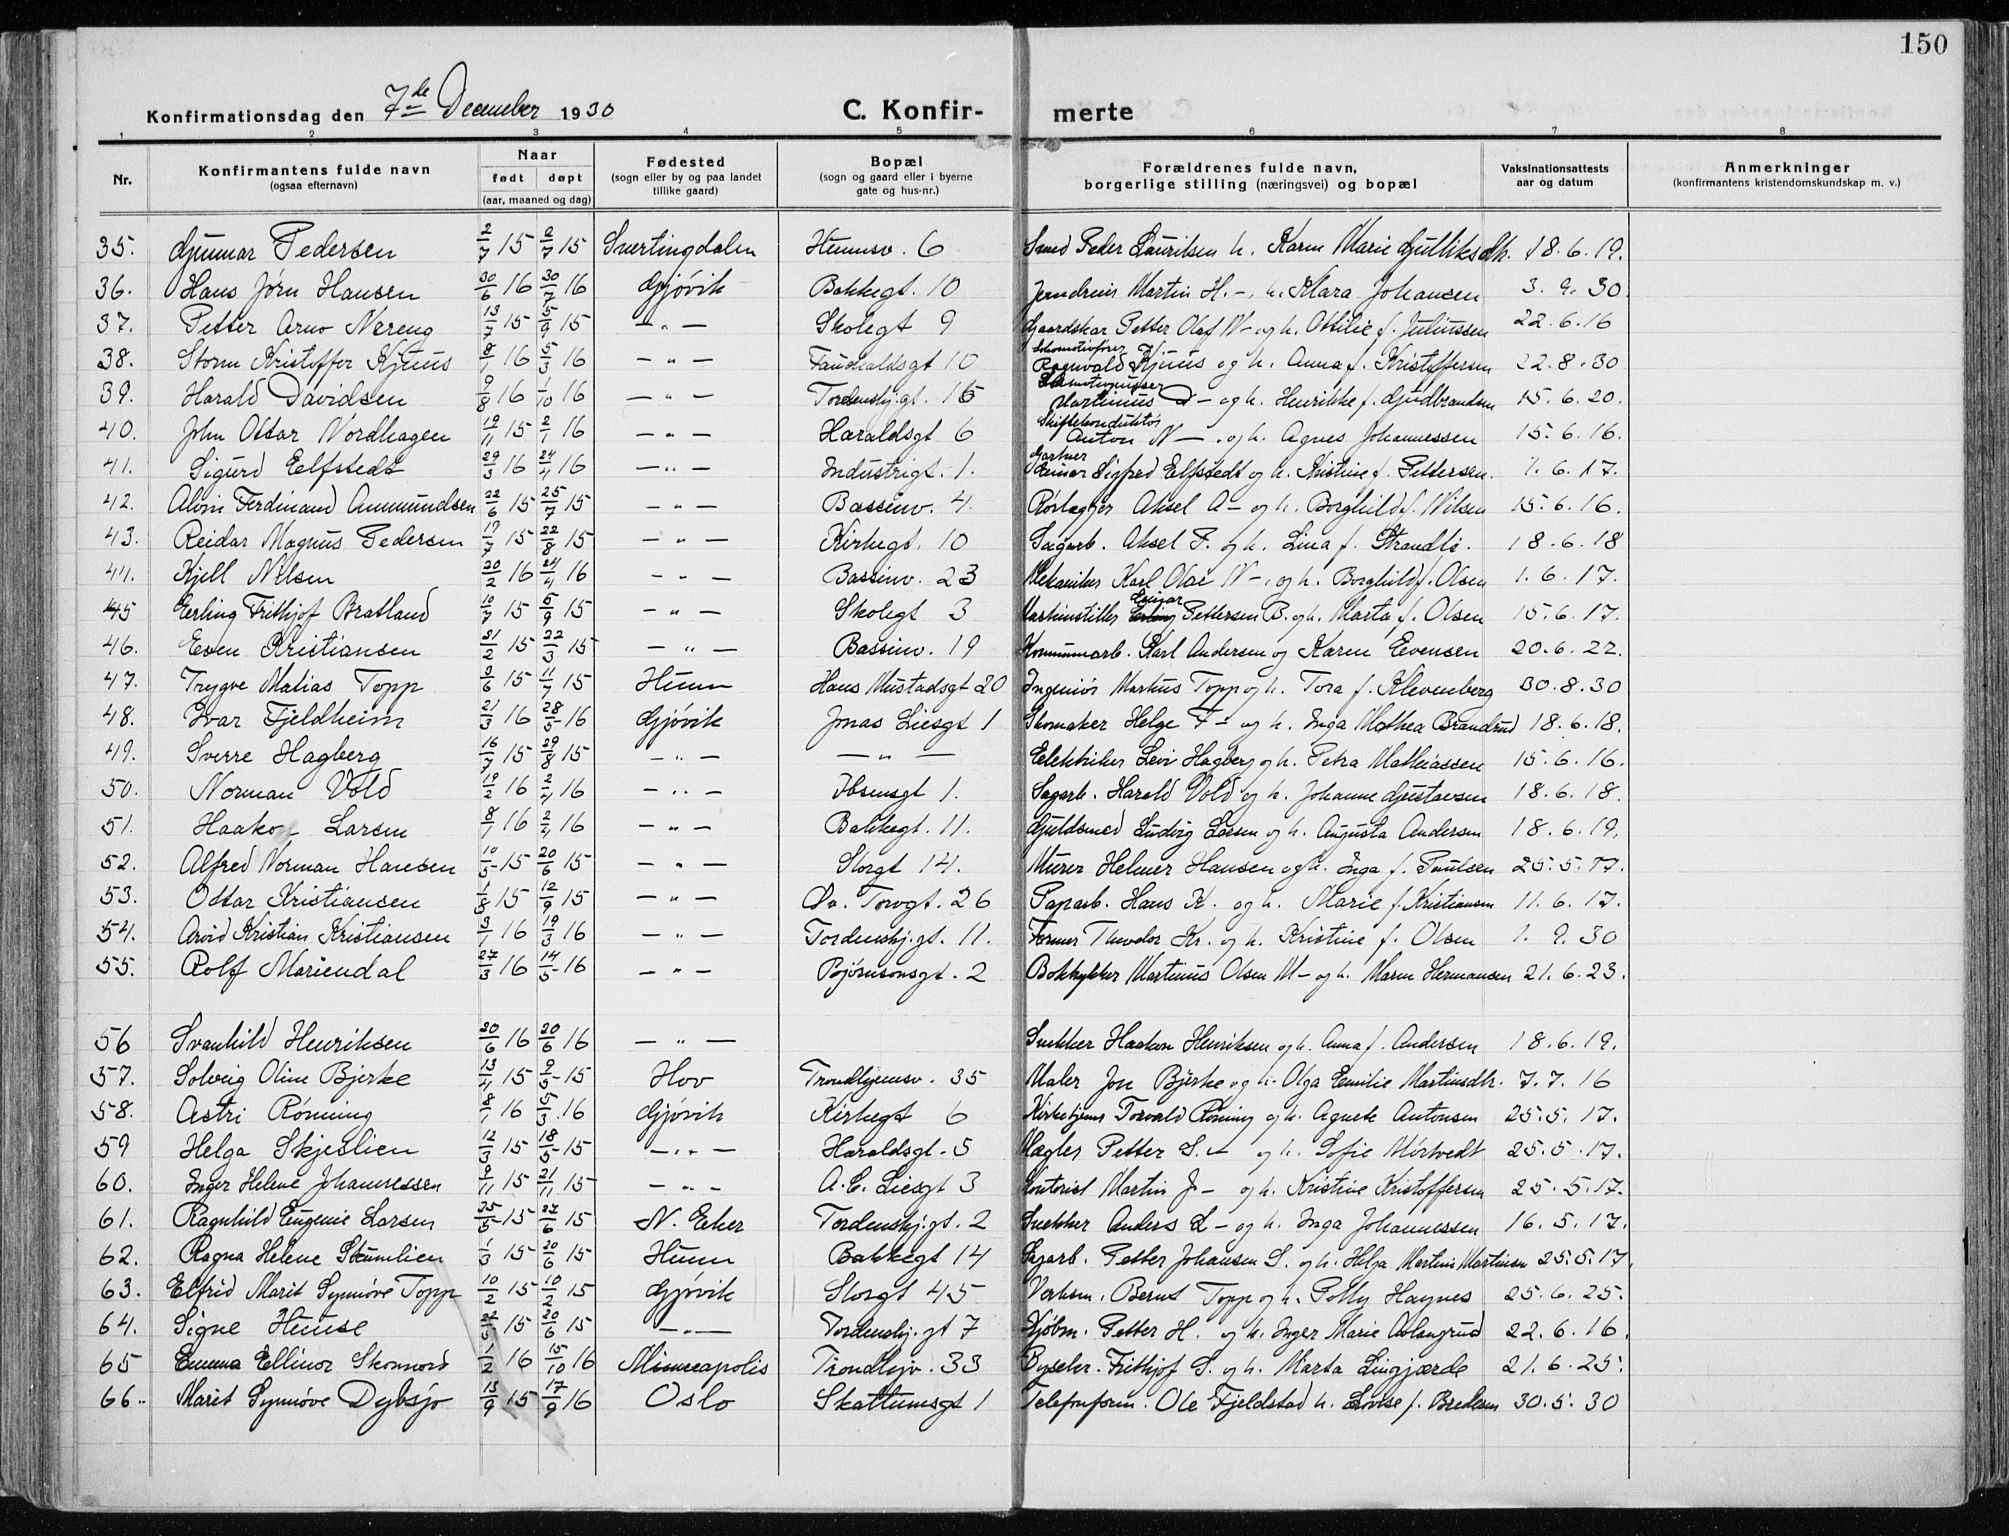 150
Konfirmationsdag den 7de December 1930 C. Konfirmerte
1 2 3 4 5 6 7 8
Nr. Konfirmantens fulde navn (ogsaa efternavn) Naar født døpt (aar, maaned og dag) Fødested (sogn eller by og paa landet tillike gaard) Bopæl (sogn og gaard eller i byerne gate og hus-nr.) Forældrenes fulde navn, borgerlige stilling (næringsvei) og bopæl Vaksinationsattests aar og datum Anmerkninger (konfirmantens kristendomskundskap m. v.)
35. Gunnar Pedersen 2/7 15 2/7 15 Snertingdalen Hunnsv. 6 Smed Peder Lauritsen h. Karen Marie Gulliksdtr. 18.6.19.
36. Hans Jørn Hansen 30/6 16 30/7 16 Gjøvik Bakkegt. 10 Jerndreier Martin H. -, h. Klara Johansen 3. 9. 30.
37. Petter Arno Nereng 13/7 15 5/9 15 — " — Skolegt 9 Gaardskar Petter Olaf N - og h. Ottilie f. Juliussen 22.6.16
38. Storm Kristoffer Kjuus 8/1 16 5/3 16 — " — Fauchaldsgt 10 Lokomotivfører Ragnvald Kjuus og h. Anna f. Kristoffersen 22.8.30
39. Harald Davidsen 9/8 16 1/10 16 — " — Tordenskj.gt. 15 Martinius D - og h. Henrikke f. Gudbrandsen 15.6.20.
40. John Ottar Nordhagen 19/11 15 2/1 16 — " — Haraldsgt 6 Skiftekonduktør Anton N -, og h. Agnes Johannessen 15.6.16.
41. Sigurd Elfstedt 29/3 16 24/4 16 — " — Industrigt. 1. Gartner Einar Sigfred Elfstedt og h. Kristine f. Pettersen. 1.6.17.
42. Alvin Ferdinand Ammundsen 22/6 15 25/7 15 — " — Bassinv. 4. Rørlegger Aksel A - og h. Borghild f. Nilsen 15.6.16.
43. Reidar Magnus Pedersen 17/7 15 22/8 15 — " — Kirkegt. 10 Sagarb. Aksel P. og h. Lina f. Strandlø. 18.6.18
44. Kjell Nilsen 20/2 16 24/4 16 — " — Bassinv. 23 Mekaniker Karl Olai N -, og h. Borghild f. Olsen 1.6.17.
45 Erling Frithjof Bratland 10/7 15 5/9 15 — " — Skolegt 3 Einar Pettersen B. og h. Marta f. Olsen 15.6.17.
46. Even Kristiansen 21/2 15 22/3 15 — " — Bassinv. 19 Kommunearb. Karl Andersen og Karen Evensen 20.6.22.
47. Trygve Matias Topp 9/6 15 11/7 15 Hunn Hans Mustadsgt 20 Ingeniør Markus Topp og h. Tora f. Klevenberg 30.8.30
48. Ivar Fjeldheim 21/3 16 28/5 16 Gjøvik Jonas Liesgt 1 Skomaker Helge F - og h. Inga Mathea Brandrud 18.6.18.
49. Sverre Hagberg 16/7 15 29/8 15 — " — — " — Elektriker Levi Hagberg og h. Petra Mathiassen 15.6.16.
50. Norman Vold 19/2 16 2/4 16 — " — Ibsensgt 1. Sagarb. Harald Vold og h. Johanne Gustavsen 18.6.18.
51. Haakon Larsen 8/1 16 2/4 16 — " — Bakkegt. 11. Guldsmed Ludvig Larsen og h. Augusta Andersen 18.6.19.
52. Alfred Norman Hansen 10/5 15 20/6 15 — " — Storgt 14. Murer Helmer Hansen og h. Inga f. Paulsen 25.5.17.
53. Ottar Kristiansen 1/8 15 12/9 15 — " — Øv. Torvgt. 26 Paparb. Hans K. og h. Marie f. Kristiansen 11.6.17.
54. Arvid Kristian Kristiansen 3/1 16 19/3 16 — " — Tordenskj.gt. 11. Former Theodor Kr. og h. Kristine f. Olsen 1. 9. 30
55. Rolf Mariendal 27/3 16 14/5 16 — " — Bjørnsonsgt. 2 Boktrykker Martinus Olsen M - og h. Maren Hermansen 21.6.23.
56 Svanhild Henriksen 20/6 16 20/6 16 — " — Snekker Haakon Henriksen og h. Anna f. Andersen 18.6.19.
57. Solveig Oline Bjerke 13/4 15 9/5 15 Hov Trondhjemsv. 35 Maler Jon Bjerke og h. Olga Emilie Martinsdtr. 7.7.16
58. Astri Rønning 8/1 16 16 Gjøvik Kirkegt 6 Kirketjener Torvald Rønning og h. Agnete Antonsen 25.5.17.
59 Helga Skjeslien 12/3 15 18/5 15 — " — Haraldsgt. 5 Mægler Petter S. - og h. Sofie Mørtvedt 25.5.17.
60. Inger Helene Johannessen 9/11 15 21/11 15 — " — A. C. Liesgt 3 Kontorist Martin J - og h. Kristine Kristoffersen 25.5.17.
61. Ragnhild Eugenie Larsen 25/5 15 27/6 15 N. Eker Tordenskj.gt. 2 Snekker Anders L - og h. Inga Johannessen 16.5.17.
62. Ragna Helene Skumlien 1/3 15 20/6 15 Hunn Bakkegt 14 Sagarb. Petter Johansen S. og h. Helga Martine Martinsen 25.5.17.
63. Elfrid Marit Synnøve Topp 10/2 15 10/2 15 Gjøvik Storgt 45 Verksm. Bernt Topp og h. Polly Haynes 25.6.25.
64. Signe Hunse 22/5 15 20/6 15 — " — Tordenskj.gt 7 Kjøbm. Petter H. og h. Inger Marie Aslangrud 22.6.16.
65 Emma Ellinor Skonnord 1/2 16 15/10 16 Minneapolis Trondhjv. 33 Byselev. Frithjof S. og h. Marta Lingjærde 21.6.25.
66. Marit Synnøve Dybsjø 13/9 15 17/9 16 Oslo Skattumsgt 1 Telefonform. Ole Fjeldstad h. Lovise f. Bredesen 30.5.30